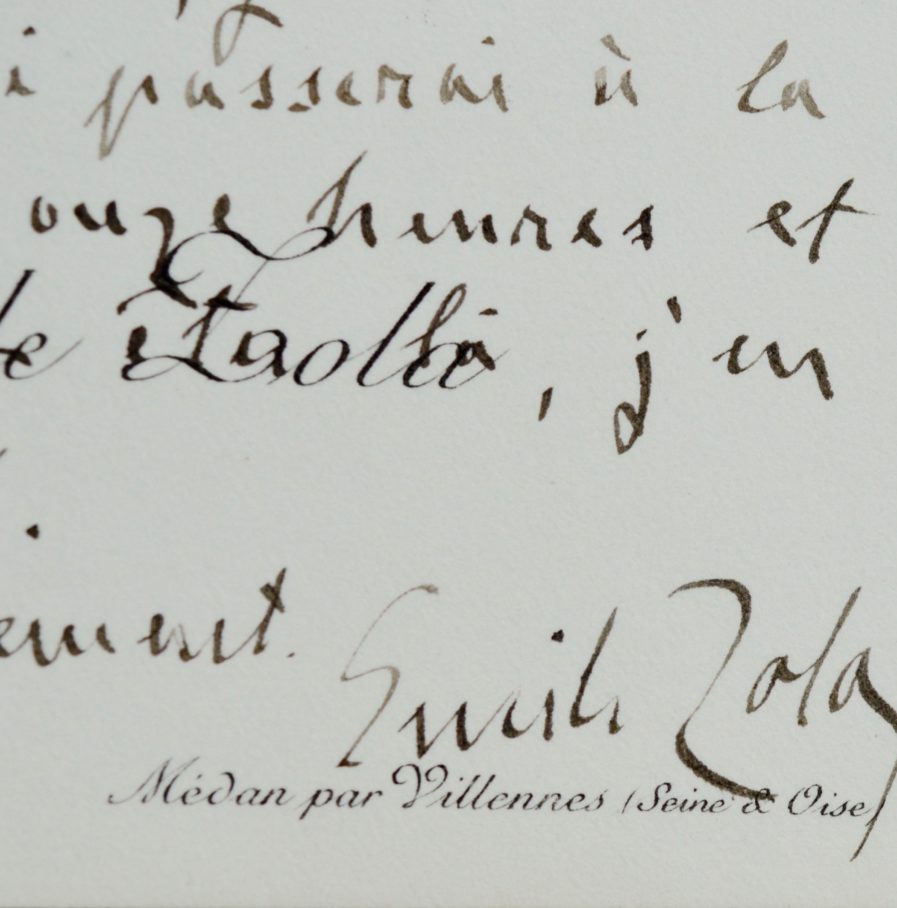 i passerai à la
onze heures et
le Zola , j'en
ement. Emile Zola
Médan par Villennes (Seine & Oise)